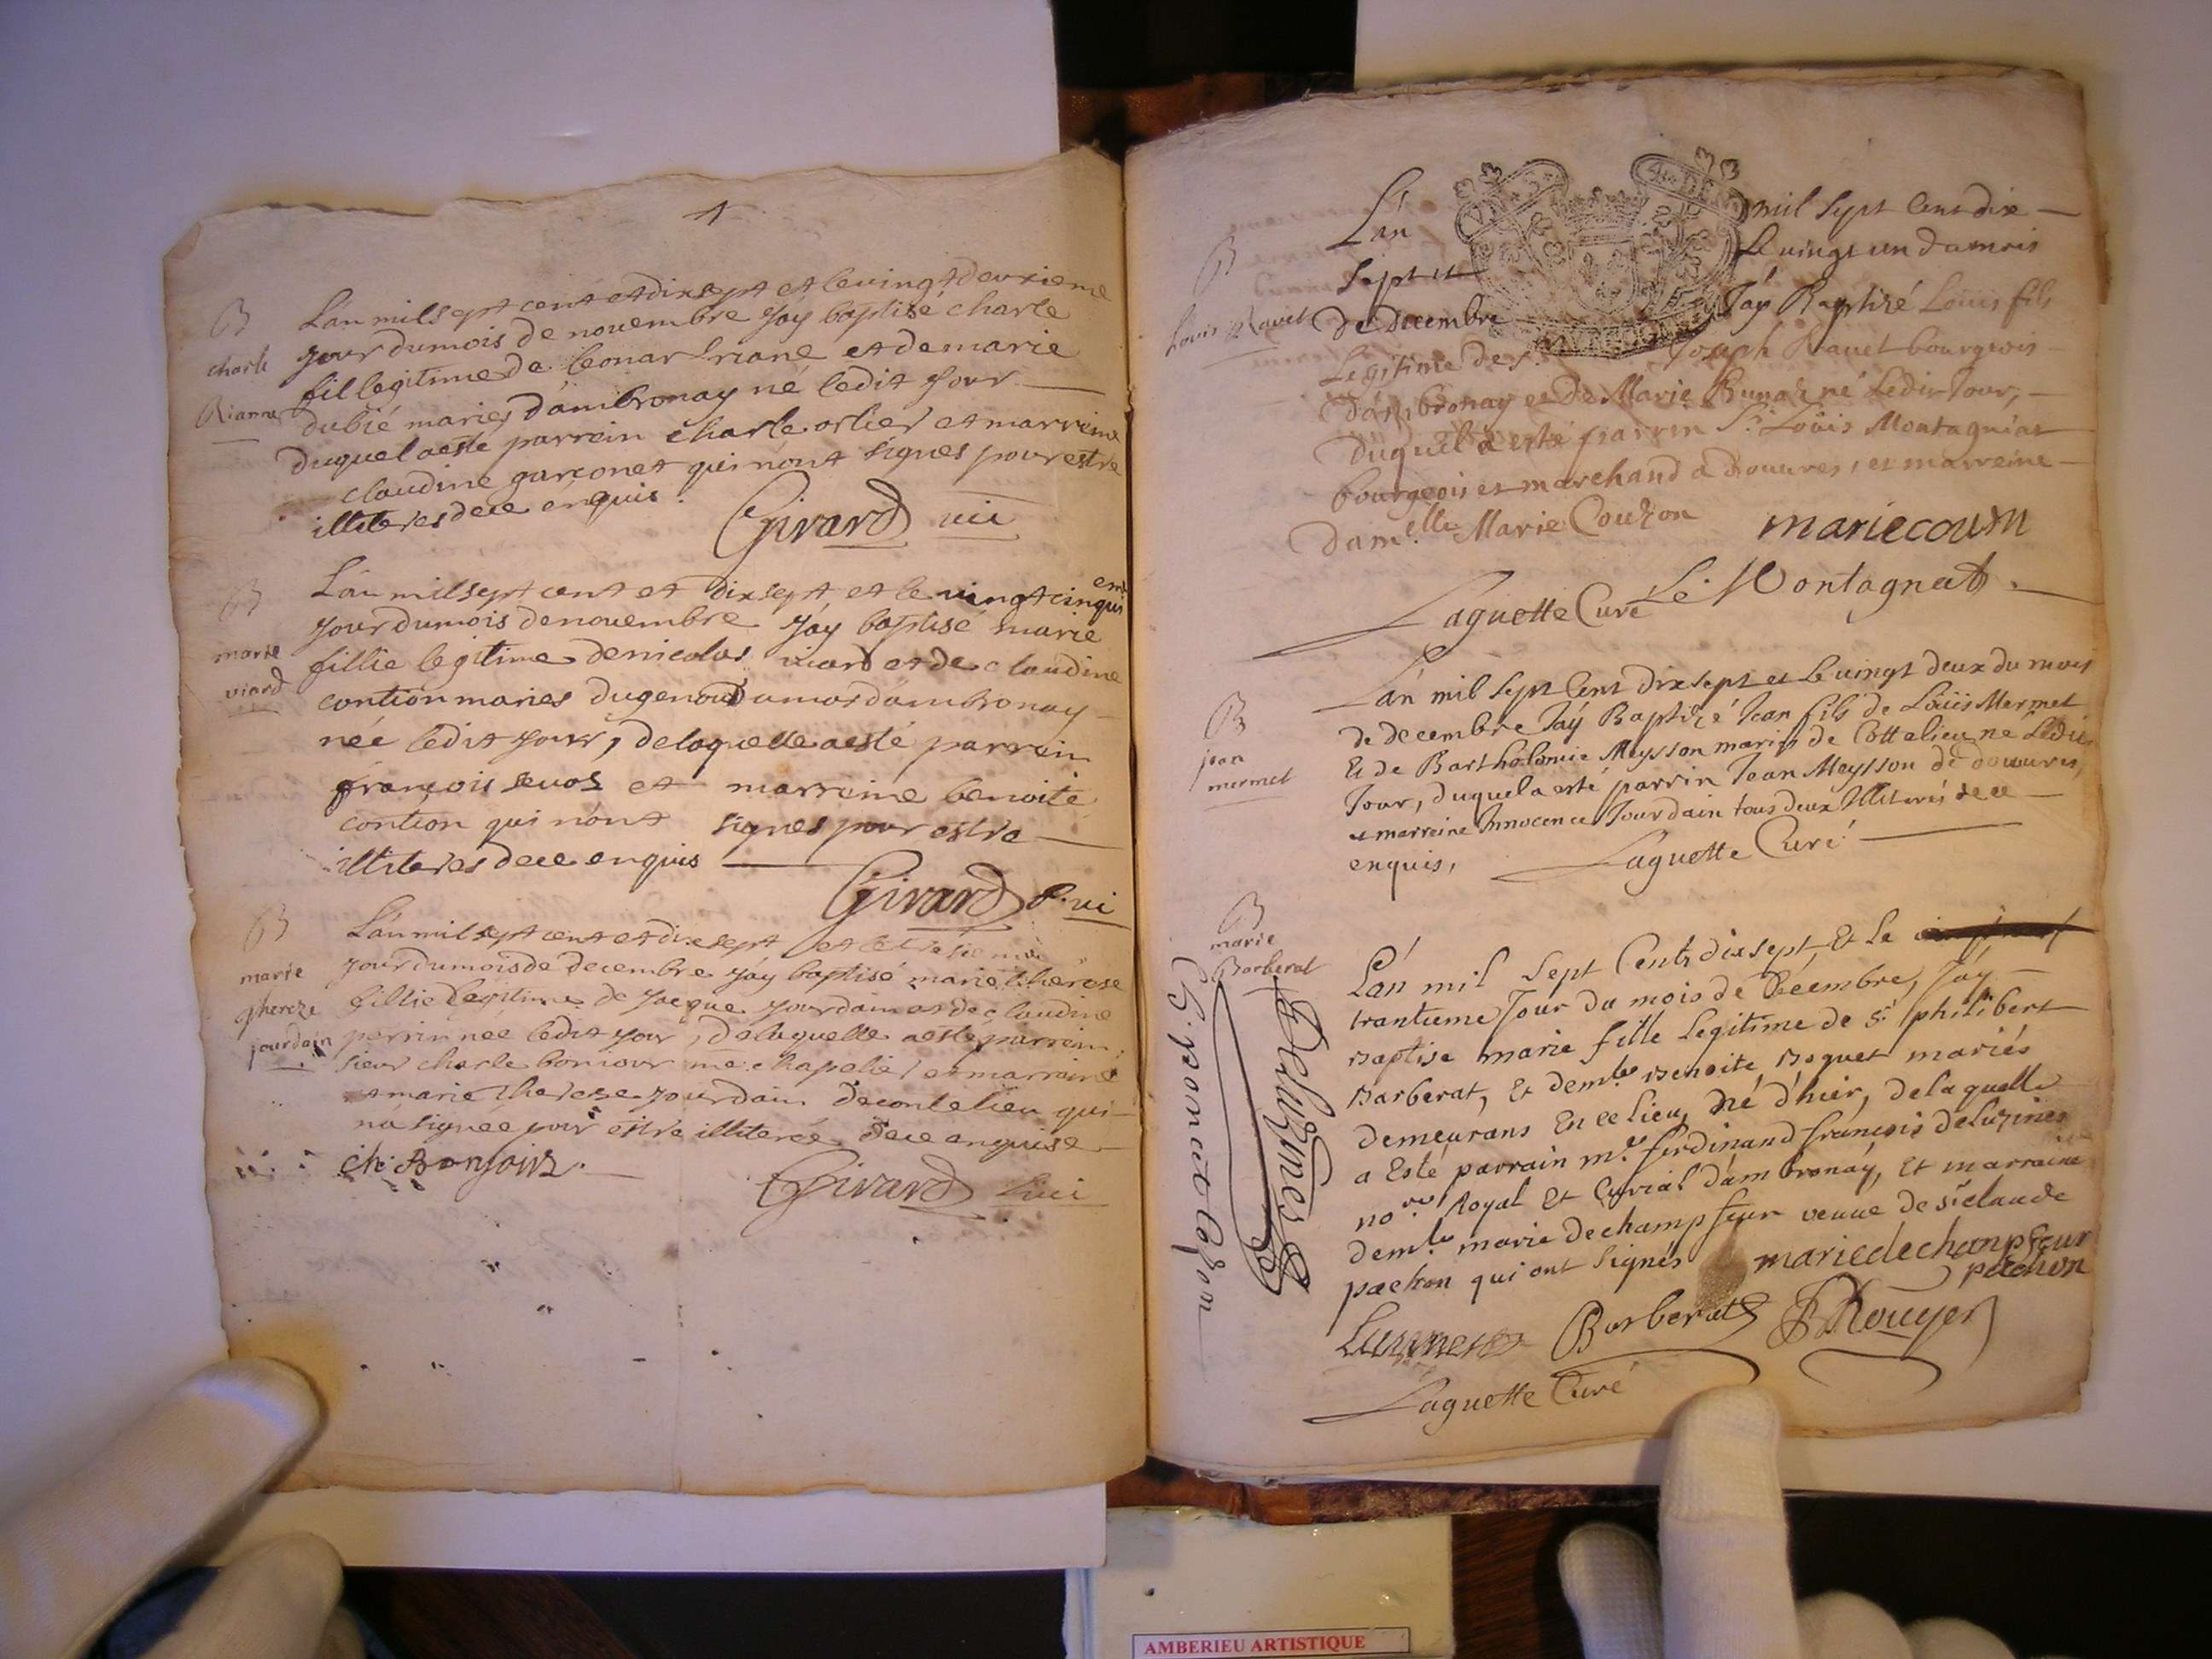 B
charle
Rianne
L'an mil sept cent et dix sept et le vingt deuxieme
jour du mois de novembre j'ay baptisé charle
fil legitime de leonar riane et de marie
dubié mariés d'ambronay né ledit jour
duquel a esté parrein charle orlier et marreine
claudine garconet qui n'ont signés pour estre
illiteres de ce enquis.
Girard vic
B
marie
viard
L'an mil sept cent et dix sept, et le vingt cinquiem
jour du mois de novembre j'ay baptisé marie
fillie legitime de nicolas viard et de claudine
contion maries d'ambronay
née ledit jour, de laquelle a esté parrein
françois et marreine benoite
contion qui n'ont signes pour estre
illiteres de ce enquis
Girard vic
B
marie
thereze
jourdain
L'an mil sept cent et dix sept et le
jour du mois de decembre j'ay baptisé marie therese
fillie legitime de jacque jourdain et de claudine
perrin née ledit jour, de laquelle a esté parrein
sieur charle bonjour me. chapelie, et marraine
marie therese jourdain de contelieu qui
n'a signée pour estre illiterée de ce enquise
ch: Bonjour.
Girard vic
B
Louis Ravet
L'an mil sept Cent dix
sept et le vingt un du mois
de decembre J'ay Baptizé Louis fils
Legitime de s. Joseph Ravet bourgeois
d'ambronay et de Marie né ledit Jour,
duquel a esté parrin Sr. Loüis Montagniat
bourgeois et marchand a Douvres, et marreine
dam.elle Marie Couzon mariecouzon
Le. Montagnat.
Laguette Curé
B
jean
mermet
L'an mil sept Cent dix sept et le vingt deux du mois
de decembre J'aÿ Baptizé Jean fils de Loüis Mermet
Et de Bartholomie Meysson mariés de Cottelieu né Ledit
Jour, duquel a esté parrin Jean Meysson de douvres,
et marreine Innocence Jourdain tous deux Illiterés de ce
enquis, Laguette Curé
B
marie
Barberat
L'an mil sept Cents dix sept, Et Le
trantieme Jour du mois de Décembre, J'aÿ
Baptise marie fille legitime de Sr. philibert
Barberat, Et demlle Benoite Boguet mariés
demeurans En ce lieu, Né d'hier, de laquelle
a Esté parrain mr. ferdinand françois deluzines
nore Royal Et Curial d'ambronay, Et marraine
demlle marie dechampseur veuve de Sr. claude
pachon qui ont Signés mariedechampseur
pachon
Barberat Rouyer
Laguette Curé
AMBERIEU ARTISTIQUE